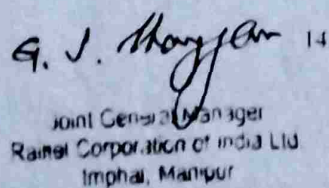 G. J. 14
Joint General Manager
Railtel Corporation of India Ltd
Imphal, Manipur